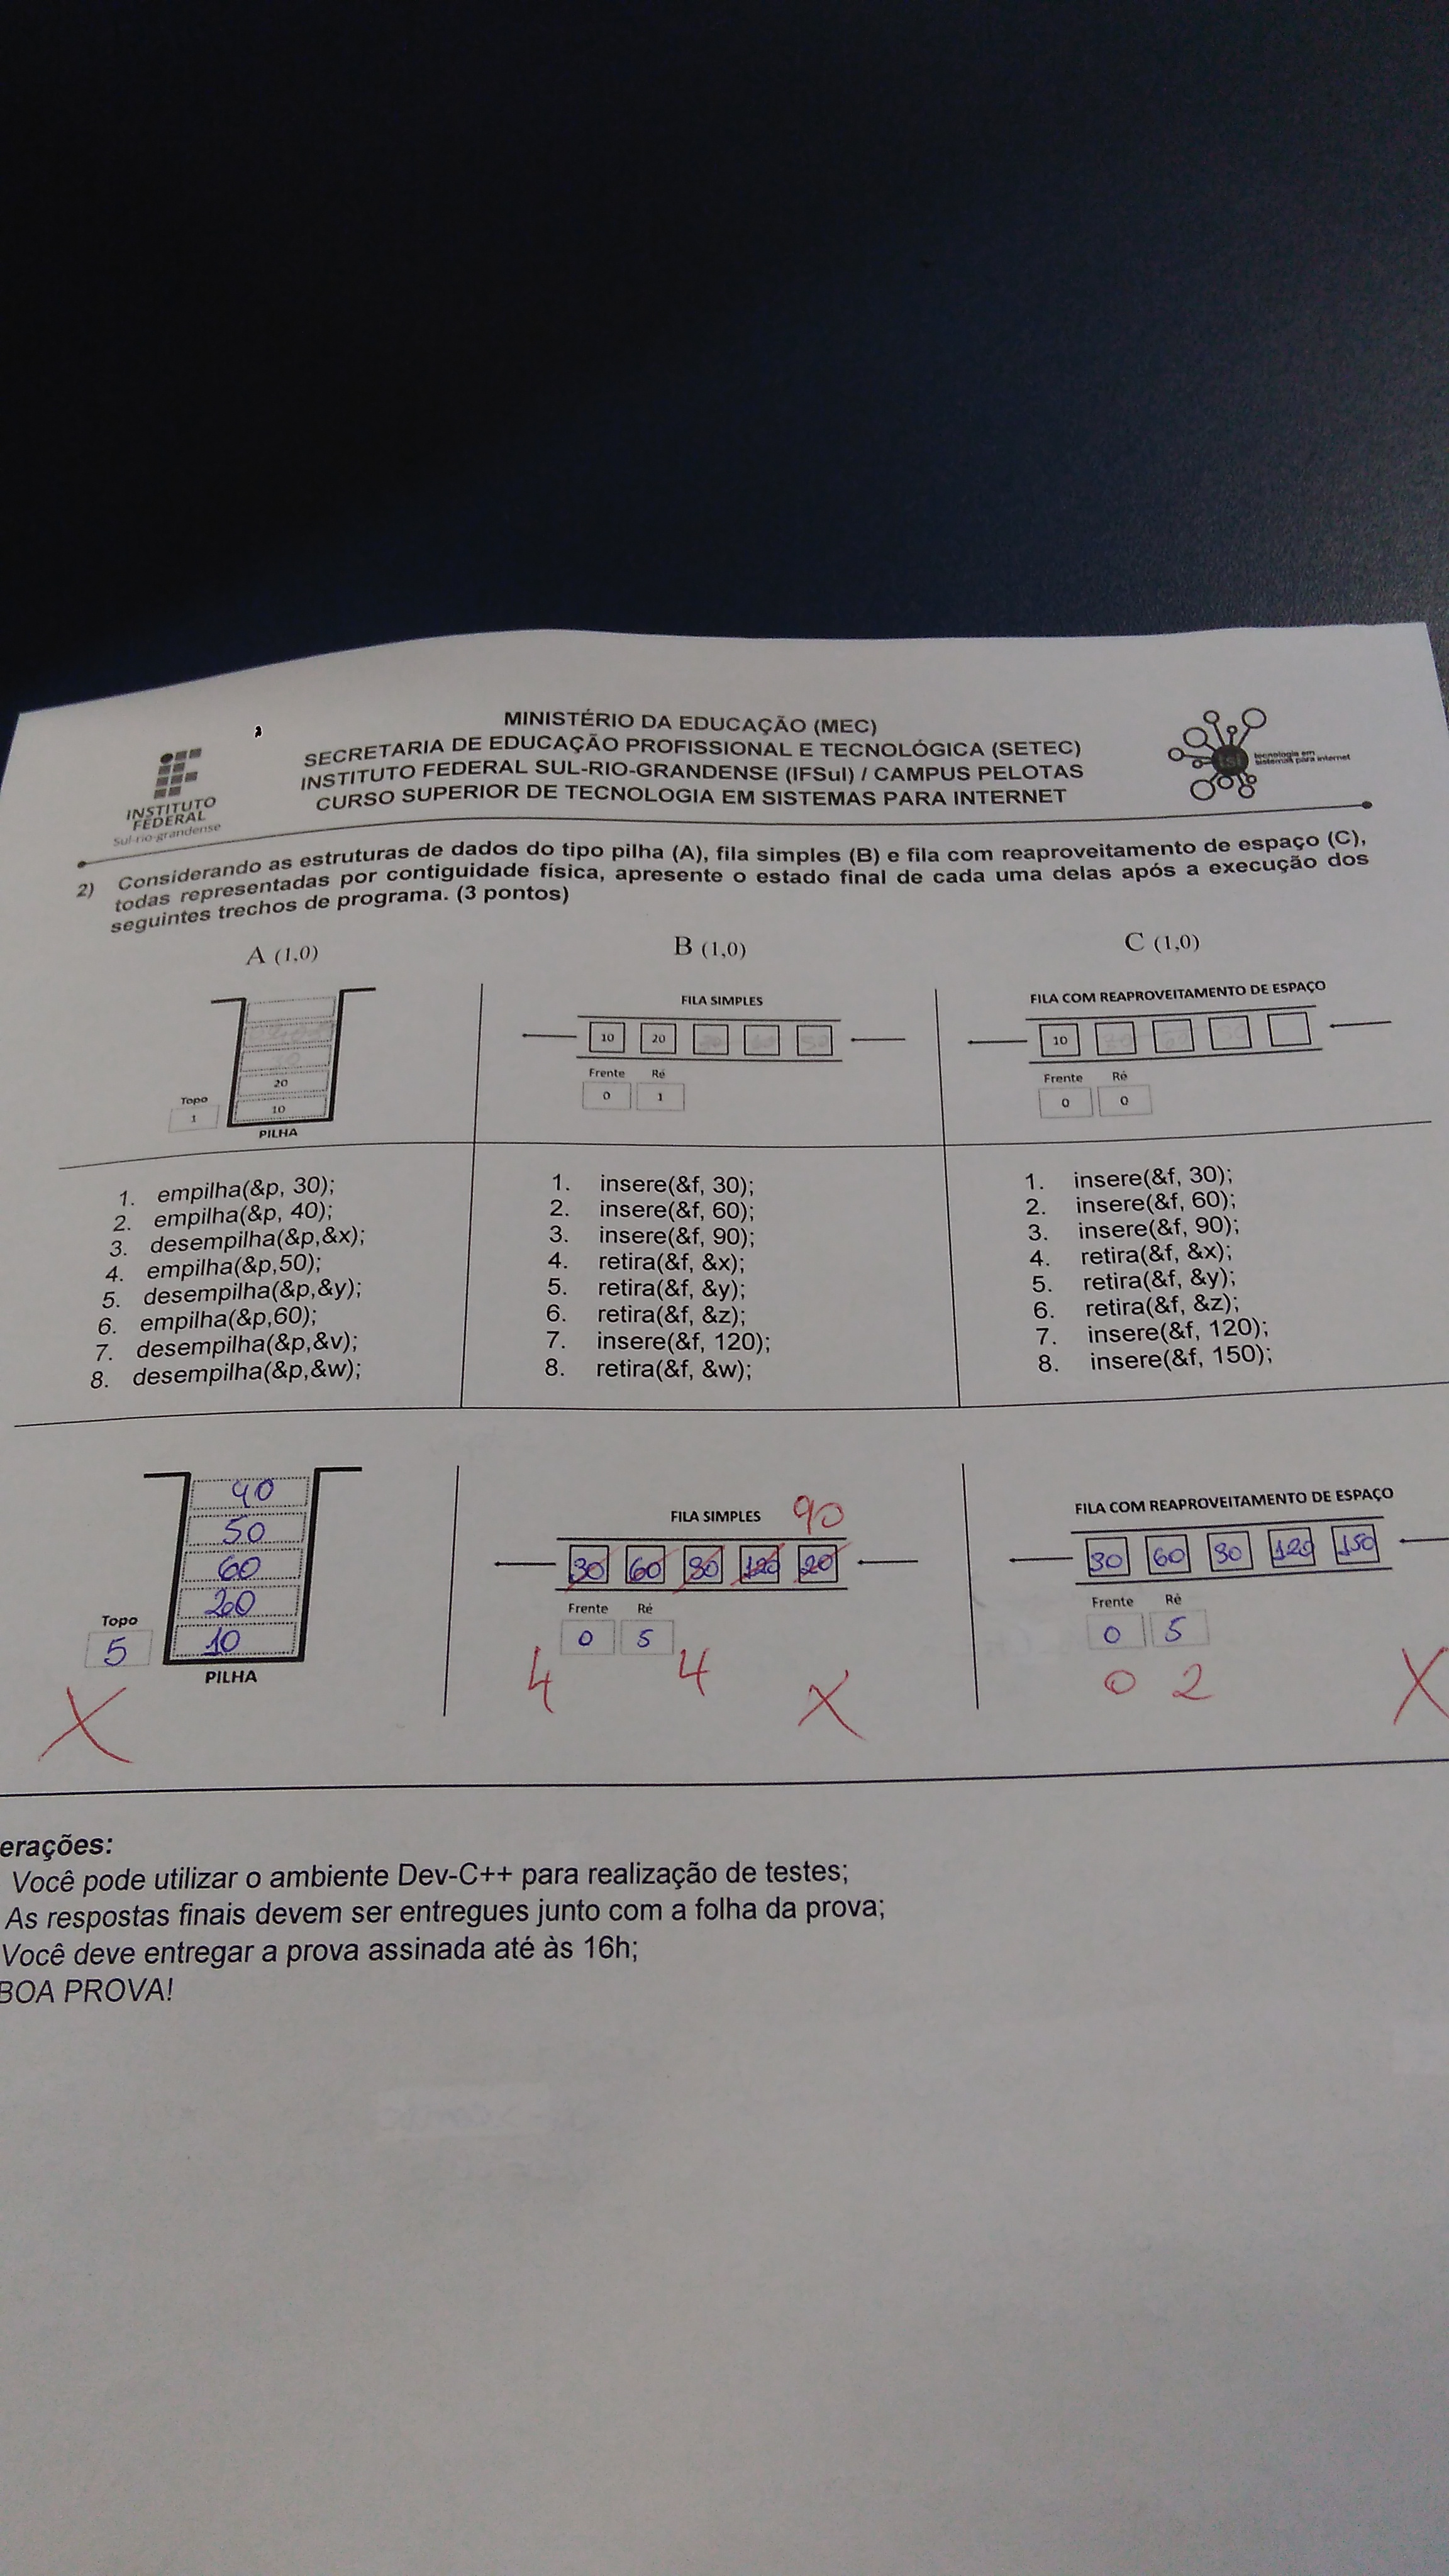 MINISTÉRIO DA EDUCAÇÃO (MEC)
SECRETARIA DE EDUCAÇÃO PROFISSIONAL E TECNOLÓGICA (SETEC)
INSTITUTO FEDERAL SUL-RIO-GRANDENSE (IFSul) / CAMPUS PELOTAS
CURSO SUPERIOR DE TECNOLOGIA EM SISTEMAS PARA INTERNET
INSTITUTO
FEDERAL
Sul-rio-grandense
tsi
tecnologia em
sistemas para internet
2) Considerando as estruturas de dados do tipo pilha (A), fila simples (B) e fila com reaproveitamento de espaço (C),
todas representadas por contiguidade física, apresente o estado final de cada uma delas após a execução dos
seguintes trechos de programa. (3 pontos)
A (1,0)
20
10
Topo
1
PILHA
1. empilha(&p, 30);
2. empilha(&p, 40);
3. desempilha(&p,&x);
4. empilha(&p,50);
5. desempilha(&p,&y);
6. empilha(&p,60);
7. desempilha(&p,&v);
8. desempilha(&p,&w);
40
50
60
20
10
Topo
5
PILHA
X
B (1,0)
FILA SIMPLES
10 20
Frente Ré
0 1
1. insere(&f, 30);
2. insere(&f, 60);
3. insere(&f, 90);
4. retira(&f, &x);
5. retira(&f, &y);
6. retira(&f, &z);
7. insere(&f, 120);
8. retira(&f, &w);
FILA SIMPLES
90
30 60 90 120 20
Frente Ré
0 5
4 4 X
C (1,0)
FILA COM REAPROVEITAMENTO DE ESPAÇO
10
Frente Ré
0 0
1. insere(&f, 30);
2. insere(&f, 60);
3. insere(&f, 90);
4. retira(&f, &x);
5. retira(&f, &y);
6. retira(&f, &z);
7. insere(&f, 120);
8. insere(&f, 150);
FILA COM REAPROVEITAMENTO DE ESPAÇO
30 60 90 120 150
Frente Ré
0 5
0 2 X
erações:
Você pode utilizar o ambiente Dev-C++ para realização de testes;
As respostas finais devem ser entregues junto com a folha da prova;
Você deve entregar a prova assinada até às 16h;
BOA PROVA!